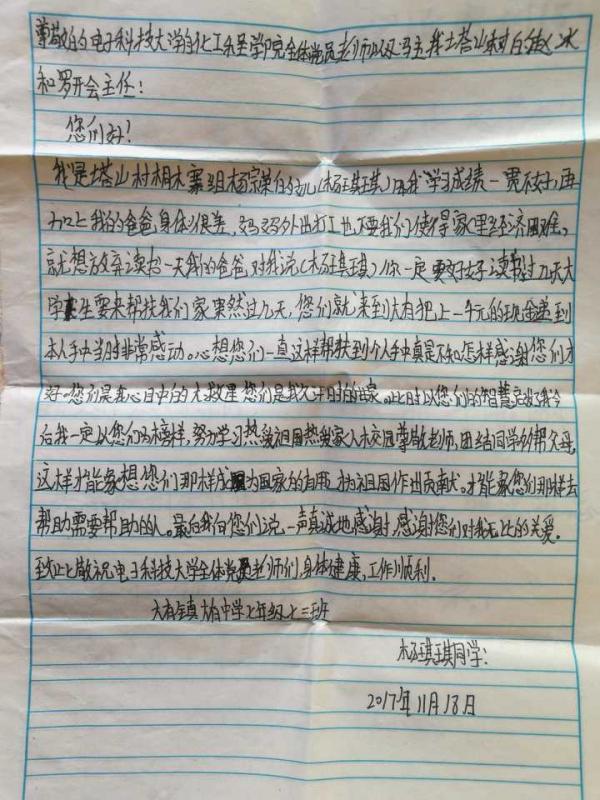 尊敬的电子科技大学的化工系至学院全体党员老师以及马主我土塔山村的
和罗开会主任!
您们好!
我是塔山村桐木寨组杨宗荣的幼儿(杨琪琪)因我学习成绩一贯不好,再
加上我的爸爸身体很差,妈妈外出打工也不要我们使得家里经济困难,
就想放弃读书一天我的爸爸对我说(杨琪琪)你一定要好好读书过几天大
学生要来帮扶我们家果然过几天,您们就来到大有把上一千元的现金递到
本人手中当时非常感动。心想您们一直这样帮扶到个人手中真是不知怎样感谢您们才
好。您们是我心目中的大救星您们是我允许时的。此时以您们的智慧启发我今
后我一定以您们为榜样,努力学习热爱祖国热我家人木校园尊敬老师,团结同学的帮父母,
这样才能象想您们那样成为国家的有用,为祖国作出贡献才,才能象您们那样去
帮助需要帮助的人。最后我向您们说一声真诚地感谢,感谢您们对我无比的关爱。
致此敬祝电子科技大学全体党员老师们,身体健康,工作顺利.
大有镇大有中学七年级七三班
杨琪琪同学:
2017年11月18日